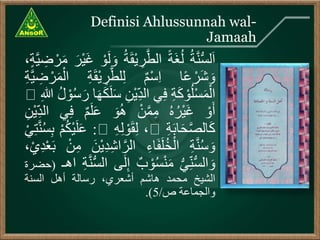 ANSOR
Definisi Ahlussunnah wal-
Jamaah
اَلسُّنَّةُ لُغَةً الطَّرِيْقَةُ وَلَوْ غَيْرَ مَرْضِيَّةٍ،
وَشَرْعًا اِسْمٌ لِلطَّرِيْقَةِ الْمَرْضِيَّةِ
الْمَسْلُوْكَةِ فِي الدِّيْنِ سَلَكَهَا رَسُوْلُ اللهِ
أَوْ غَيْرُهُ مِمَّنْ هُوَ عَلَمٌ فِي الدِّيْنِ
كَالصَّحَابَةِ ، لِقَوْلِهِ : عَلَيْكُمْ بِسُنَّتِيْ
وَسُنَّةِ الْخُلَفَاءِ الرَّاشِدِيْنَ مِنْ بَعْدِيْ،
وَالسُّنِّيُّ مَنْسُوْبٌ إِلَى السُّنَّةِ اهـ (حضرة
الشيخ محمد هاشم أشعري، رسالة أهل السنة
والجماعة ص/5).